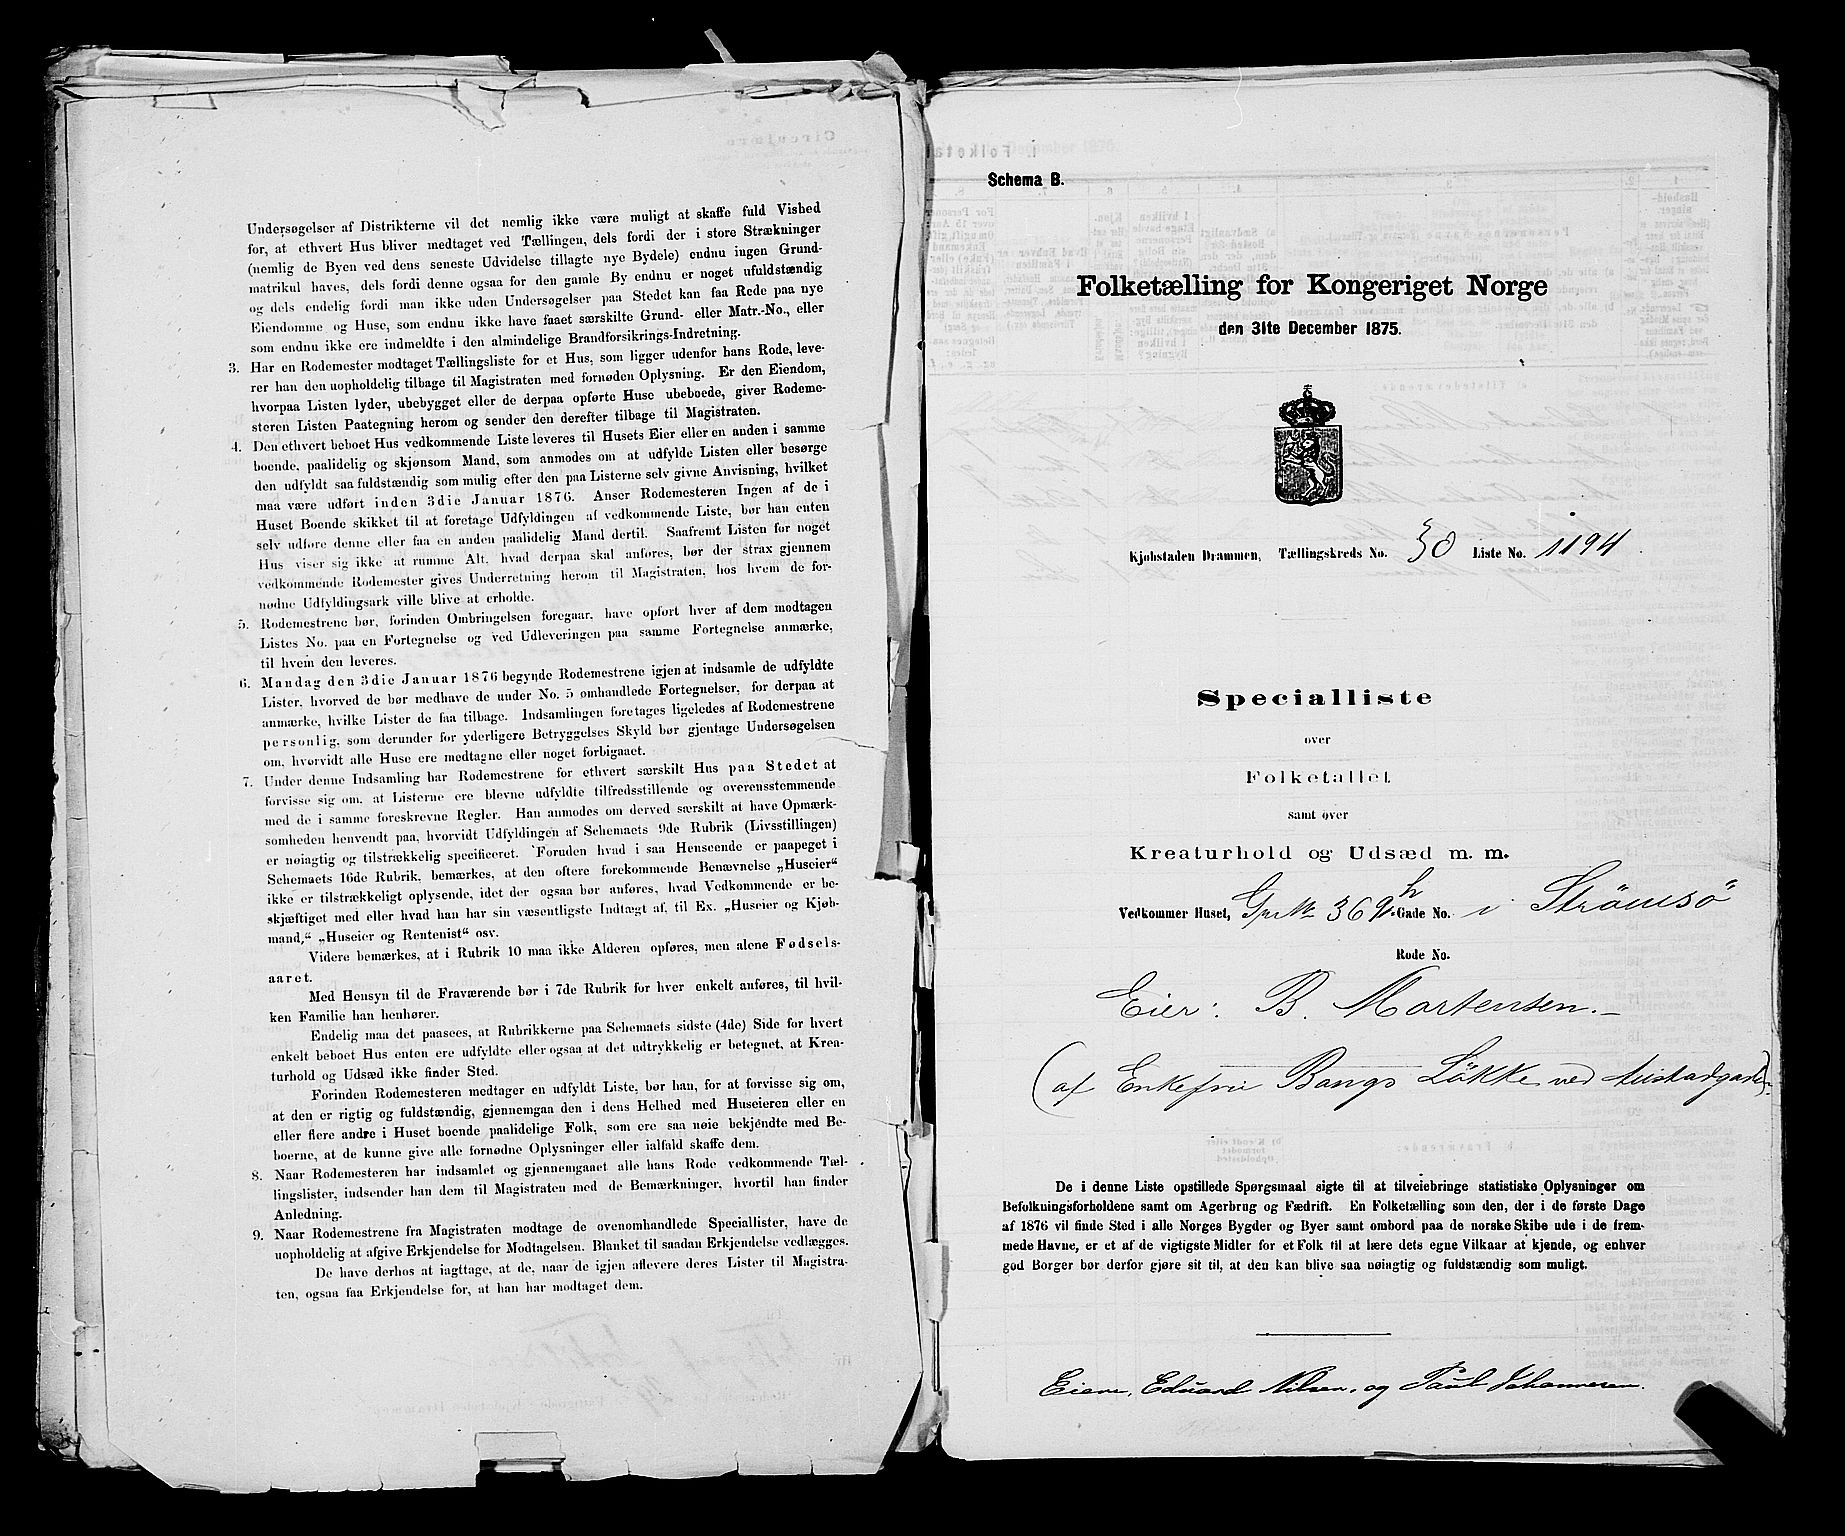 Undersøgelser af Distrikterne vil det nemlig ikke være muligt at skaffe fuld Vished
for, at ethvert Hus bliver medtaget ved Tællingen, dels fordi der i store Strækninger
(nemlig de Byen ved dens seneste Udvidelse tillagte nye Bydele) endnu ingen Grund-
matrikul haves, dels fordi denne ogsaa for den gamle By endnu er noget ufuldstændig
og dels endelig fordi man ikke uden Undersøgelser paa Stedet kan faa Rede paa nye
Eiendomme og Huse, som endnu ikke have faaet særskilte Grund- eller Matr.-No., eller
som endnu ikke ere indmeldte i den almindelige Brandforsikrings-Indretning.
3. Har en Rodemester modtaget Tællingsliste for et Hus, som ligger udenfor hans Rode, leve-
rer han den uopholdelig tilbage til Magistraten med fornøden Oplysning. Er den Eiendom,
hvorpaa Listen lyder, ubebygget eller de derpaa opførte Huse ubeboede, giver Rodeme-
steren Listen Paategning herom og sender den derefter tilbage til Magistraten.
4. Den ethvert beboet Hus vedkommende Liste leveres til Husets Eier eller en anden i samme
boende, paalidelig og skjønsom Mand, som anmodes om at udfylde Listen eller besørge
den udfyldt saa fuldstændig som mulig efter den paa Listerne selv givne Anvisning, hvilket
maa være udført inden 3die Januar 1876. Anser Rodemesteren Ingen af de i
Huset Boende skikket til at foretage Udfyldingen af vedkommende Liste, bør han enten
selv udføre denne eller faa en anden paalidelig Mand dertil. Saafremt Listen for noget
Hus viser sig ikke at rumme Alt, hvad derpaa skal anføres, bør der strax gjennem
vedkommende Rodemester gives Underretning herom til Magistraten, hos hvem de for-
nødne Udfyldingsark ville blive at erholde.
5. Rodemestrene bør, forinden Ombringelsen foregaar, have opført hver af dem modtagen
Listes No. paa en Fortegnelse og ved Udleveringen paa samme Fortegnelse anmærke,
til hvem den leveres.
6. Mandag den 3die Januar 1876 begynde Rodemestrene igjen at indsamle de udfyldte
Lister, hvorved de bør medhave de under No. 5 omhandlede Fortegnelser, for derpaa at
anmærke, hvilke Lister de faa tilbage. Indsamlingen foretages ligeledes af Rodemestrene
personlig, som derunder for yderligere Betryggelses Skyld bør gjentage Undersøgelsen
om, hvorvidt alle Huse ere medtagne eller noget forbigaaet.
7. Under denne Indsamling har Rodemestrene for ethvert særskilt Hus paa Stedet at
forvisse sig om, at Listerne ere blevne udfyldte tilfredsstillende og overensstemmende
med de i samme foreskrevne Regler. Han anmodes om derved særskilt at have Opmærk-
somheden henvendt paa, hvorvidt Udfyldingen af Schemaets 9de Rubrik (Livsstillingen)
er nøiagtig og tilstrækkelig specificeret. Foruden hvad i saa Henseende er paapeget i
Schemaets 16de Rubrik, bemærkes, at den oftere forekommende Benævnelse „Huseier“
ikke er tilstrækkeligt oplysende, idet der ogsaa bør anføres, hvad Vedkommende er be-
skjæftiget med eller hvad han har sin væsentligste Indtægt af, til Ex. „Huseier og Kjøb-
mand,“ „Huseier og Rentenist“ osv.
Videre bemærkes, at i Rubrik 10 maa ikke Alderen opføres, men alene Fødsels-
aaret.
Med Hensyn til de Fraværende bør i 7de Rubrik for hver enkelt anføres, til hvil-
ken Familie han henhører.
Endelig maa det paasees, at Rubrikkerne paa Schemaets sidste (4de) Side for hvert
enkelt beboet Hus enten ere udfyldte eller ogsaa at det udtrykkelig er betegnet, at Krea-
turhold og Udsæd ikke finder Sted.
Forinden Rodemesteren medtager en udfyldt Liste, bør han, for at forvisse sig om,
at den er rigtig og fuldstændig, gjennemgaa den i dens Helhed med Huseieren eller en
eller flere andre i Huset boende paalidelige Folk, som ere saa nøie bekjendte med Be-
boerne, at de kunne give alle fornødne Oplysninger eller ialfald skaffe dem.
8. Naar Rodemesteren har indsamlet og gjennemgaaet alle hans Rode vedkommende Tæl-
lingslister, indsender han dem til Magistraten med de Bemærkninger, hvortil han finder
Anledning.
9. Naar Rodemestrene fra Magistraten modtage de ovenomhandlede Speciallister, have de
uopholdelig at afgive Erkjendelse for Modtagelsen. Blanket til saadan Erkjendelse vedlægges.
De have derhos at iagttage, at de, naar de igjen aflevere deres Lister til Magistra-
ten, ogsaa faa Erkjendelse for, at han har modtaget dem.
Schema B.
Folketælling for Kongeriget Norge
den 31te December 1875.
Kjøbstaden Drammen, Tællingskreds No. 30 Liste No. 1194
Specialliste
over
Folketallet
samt over
Kreaturhold og Udsæd m. m.
Vedkommer Huset, 369 h Gade No. i Strömsö
Rode No.
Eier: B. Mortensen.
(af Enkefru Bangs Lökke ved
De i denne Liste opstillede Spørgsmaal sigte til at tilveiebringe statistiske Oplysninger om
Befolkningsforholdene samt om Agerbrug og Fædrift. En Folketælling som den, der i de første Dage
af 1876 vil finde Sted i alle Norges Bygder og Byer samt ombord paa de norske Skibe ude i de frem-
mede Havne, er et af de vigtigste Midler for et Folk til at lære dets egne Vilkaar at kjende, og enhver
god Borger bør derfor gjøre sit til, at den kan blive saa nøiagtig og fuldstændig som muligt.
Eiere, Eduard Nilsen, og Paul Johannesen.